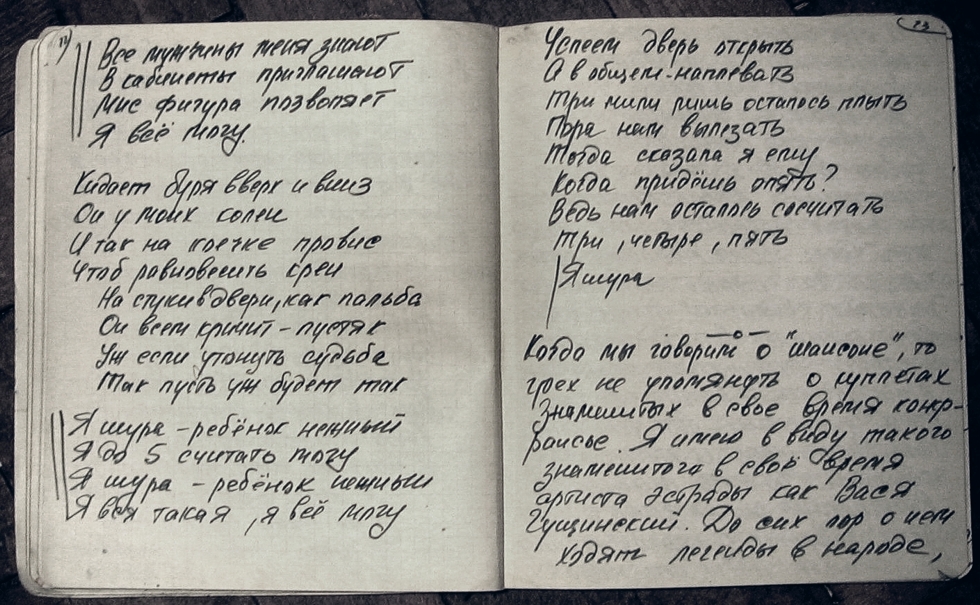 11)
Все мужчины меня знают
В кабинеты приглашают
Мне фигура позволяет
Я всё могу.
Кидает буря вверх и вниз
Он у моих колен
И так на коечке провис
Чтоб равновесить крен
На стуки в двери, как пальба
Он всем кричит - пустяк
Уж если утонуть судьба
Так пусть уж будет так
Я шура - ребёнок нежный
Я до 5 считать могу
Я шура - ребёнок нежный
Я вся такая, я всё могу
23
Успеем дверь открыть
А в общем-наплевать
Три мили лишь осталось плыть
Пора нам вылезать
Тогда сказала я ему
Когда придёшь опять?
Ведь нам осталось сосчитать
Три, четыре, пять
Я шура
Когда мы говорим о "шансоне", то
грех не упомянуть о куплетах
знаменитых в свое время конфе-
рансье. Я имею в виду такого
знаменитого в своё время
артиста эстрады как Вася
Гущинский. До сих пор о нем
ходят легенды в народе,